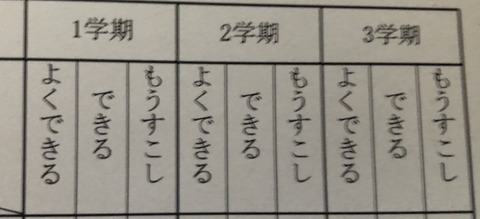 1学期
2学期
3学期
よくできる
できる
もうすこし
よくできる
できる
もうすこし
よくできる
できる
もうすこし